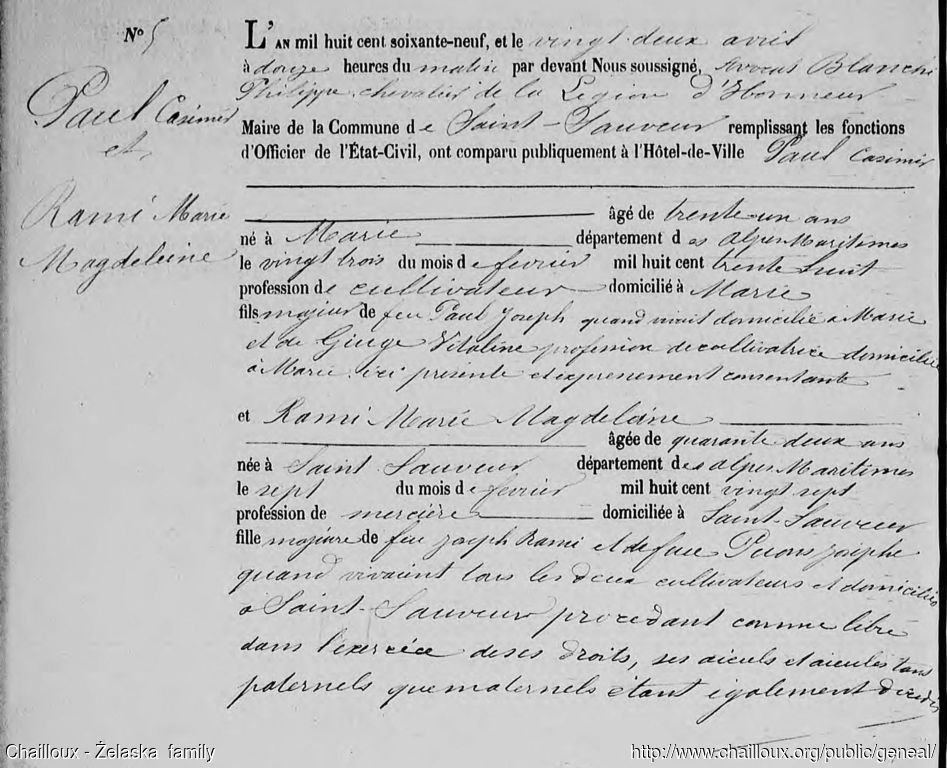 N° 5
Paul Casimir
et
Rami Marie
Magdeleine
L'AN mil huit cent soixante-neuf, et le vingt deux avril
à douze heures du matin par devant Nous soussigné, Avocat Blanchi
Philippe chevalier de la Légion d'Honneur
Maire de la Commune de Saint-Sauveur remplissant les fonctions
d'Officier de l'État-Civil, ont comparu publiquement à l'Hôtel-de-Ville Paul Casimir
âgé de trente-un ans
né à Marie département des Alpes Maritimes
le vingt trois du mois de février mil huit cent trente huit
profession de cultivateur domicilié à Marie
fils majeur de feu Paul Joseph quand vivait domicilié à Marie
et de Giuge Vitaline profession de cultivatrice domiciliée
à Marie ici présente et expressement consentante
et Rami Marie Magdeleine
âgée de quarante deux ans
née à Saint Sauveur département des Alpes Maritimes
le sept du mois de février mil huit cent vingt sept
profession de mercière domiciliée à Saint-Sauveur
fille majeure de feu Joseph Rami et de feue Josèphe
quand vivaient tous les deux cultivateurs et domiciliés
à Saint-Sauveur procédant comme libre
dans l'exercice de ses droits, ses aieuls et aieules tans
paternels que maternels étant également décédés
Chailloux - Želaska family
http://www.chailloux.org/public/geneal/